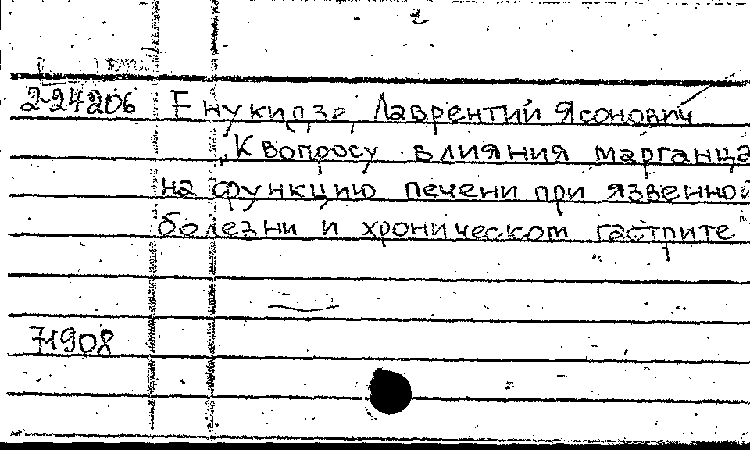 2-24206 Енукидзе, Лаврентий Ясонович
"К вопросу влияния марганца
на функцию печени при язвенной
болезни и хроническом гастрите"
71908